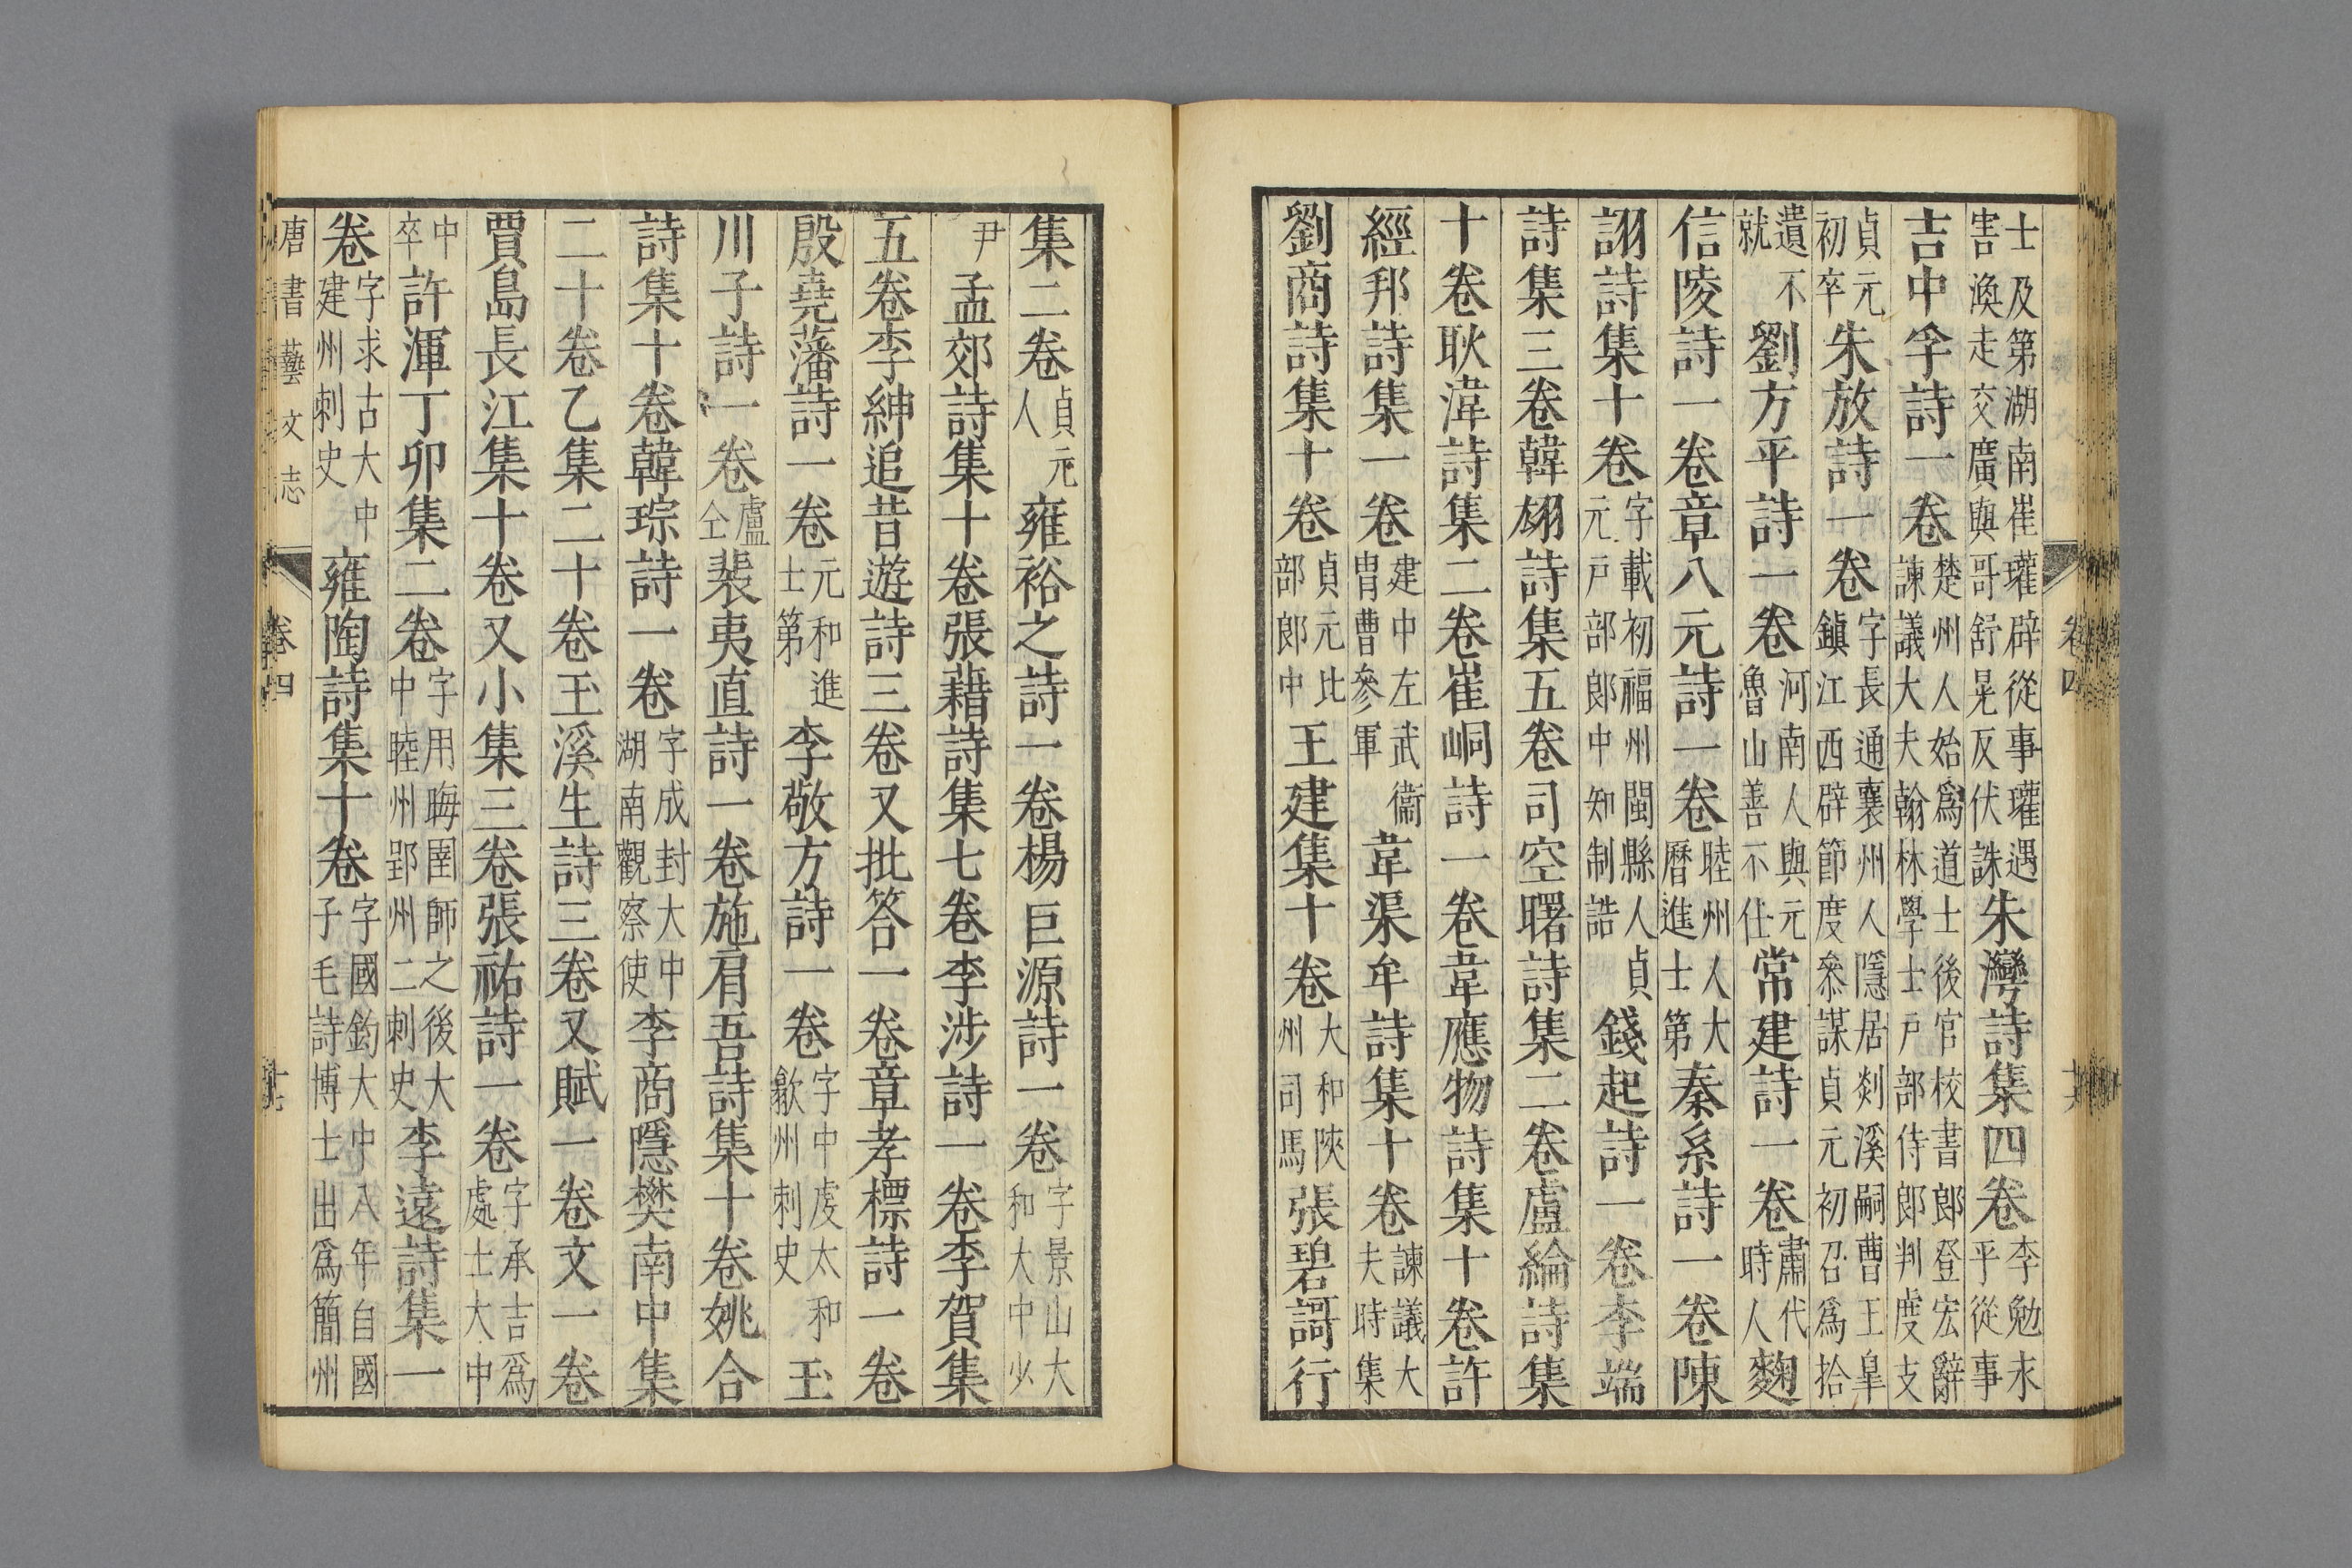 士及第湖南崔瓘辟從事瓘遇
害渙走交廣與哥舒晃反伏誅朱灣詩集四卷李勉永
平從事
吉中孚詩一卷楚州人始爲道士後官校書郎登宏辭
諫議大夫翰林學士戸部侍郎判度支
貞元
初卒朱放詩一卷字長通襄州人隱居剡溪嗣曹王臯
鎭江西辟節度叅謀貞元初召爲拾
遺不
就劉方平詩一卷河南人與元
魯山善不仕常建詩一卷肅代
時人麴
信陵詩一卷章八元詩一卷睦州人大
曆進士第秦系詩一卷陳
詡詩集十卷字載初福州閩縣人貞
元戸部郎中知制誥錢起詩一卷李端
詩集三卷韓翃詩集五卷司空曙詩集二卷盧綸詩集
十卷耿湋詩集二卷崔峒詩一卷韋應物詩集十卷許
經邦詩集一卷建中左武衞
胄曹參軍韋渠牟詩集十卷諫議大
夫時集
劉商詩集十卷貞元比
部郎中王建集十卷大和陝
州司馬張碧謌行
卷四
十六
集二卷貞元
人雍裕之詩一卷楊巨源詩一卷字景山大
和大中少
尹孟郊詩集十卷張藉詩集七卷李涉詩一卷李賀集
五卷李紳追昔遊詩三卷又批答一卷章孝標詩一卷
殷堯藩詩一卷元和進
士第李敬方詩一卷字中虔太和
歙州刺史玉
川子詩一卷盧
仝裴夷直詩一卷施肩吾詩集十卷姚合
詩集十卷韓琮詩一卷字成封大中
湖南觀察使李商隱樊南中集
二十卷乙集二十卷玉溪生詩三卷又賦一卷文一卷
賈島長江集十卷又小集三卷張祐詩一卷字承吉爲
處士大中
中
卒許渾丁卯集二卷字用晦圉師之後大
中睦州郢州二刺史李遠詩集一
卷字求古大中
建州刺史雍陶詩集十卷字國鈞大中八年自國
子毛詩博士出爲簡州
唐書藝文志
卷四
十七